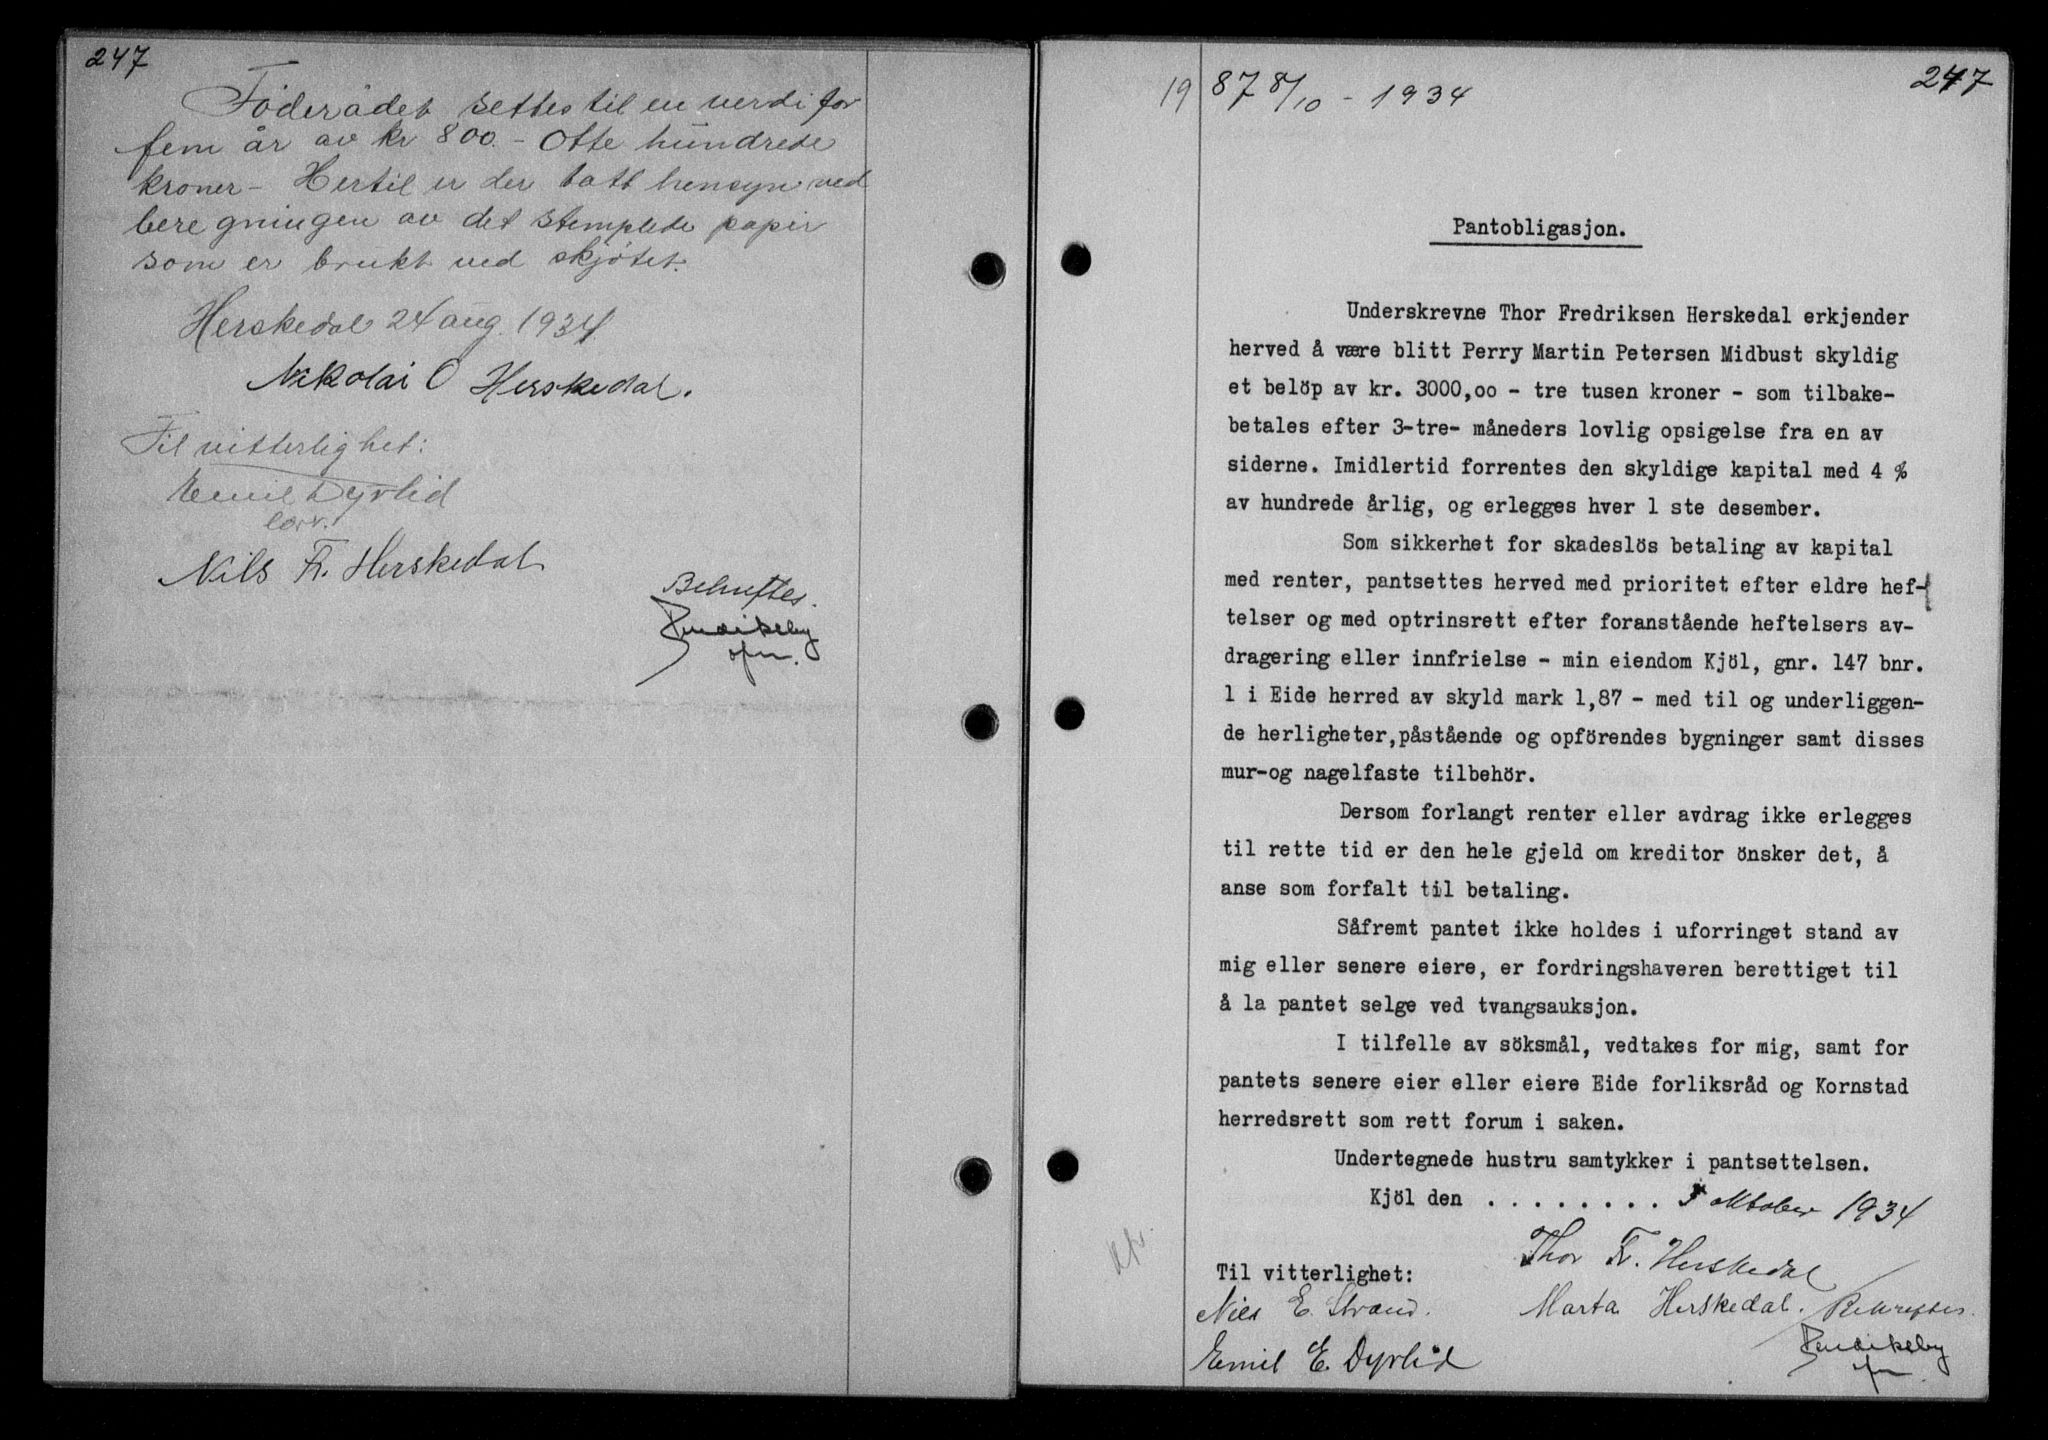 247
Föderådet settes til en verdi for
fem år av kr 800. - Otte hundrede
kroner - Hertil er der tatt hensyn ved
beregningen av det stemplede papir
som er brukt ved skjötet.
Herskedal 24 aug. 1934
Nikolai O Herskedal.
Til vitterlighet:
Emil Dyrlid
Nils Fr. Herskedal
Bekreftes.
247
1987 8/10 - 1934
Pantobligasjon.
Underskrevne Thor Fredriksen Herskedal erkjender
herved å være blitt Perry Martin Petersen Midbust skyldig
et belöp av kr. 3000,oo - tre tusen kroner - som tilbake-
betales efter 3-tre- måneders lovlig opsigelse fra en av
siderne. Imidlertid forrentes den skyldige kapital med 4 %
av hundrede årlig, og erlegges hver 1 ste desember.
Som sikkerhet for skadeslös betaling av kapital
med renter, pantsettes herved med prioritet efter eldre hef-
telser og med optrinsrett efter foranstående heftelsers av-
dragering eller innfrielse - min eiendom Kjöl, gnr. 147 bnr.
1 i Eide herred av skyld mark 1,87 - med til og underliggen-
de herligheter,påstående og opförendes bygninger samt disses
mur-og nagelfaste tilbehör.
Dersom forlangt renter eller avdrag ikke erlegges
til rette tid er den hele gjeld om kreditor önsker det, å
anse som forfalt til betaling.
Såfremt pantet ikke holdes i uforringet stand av
mig eller senere eiere, er fordringshaveren berettiget til
å la pantet selge ved tvangsauksjon.
I tilfelle av söksmål, vedtakes for mig, samt for
pantets senere eier eller eiere Eide forliksråd og Kornstad
herredsrett som rett forum i saken.
Undertegnede hustru samtykker i pantsettelsen.
Kjöl den . . . . . . . . . 3 oktober 1934
Thor Fr. Herskedal
Til vitterlighet:
Marta Herskedal. Bekreftes.
Nils E. Strand.
Emil E. Dyrlid